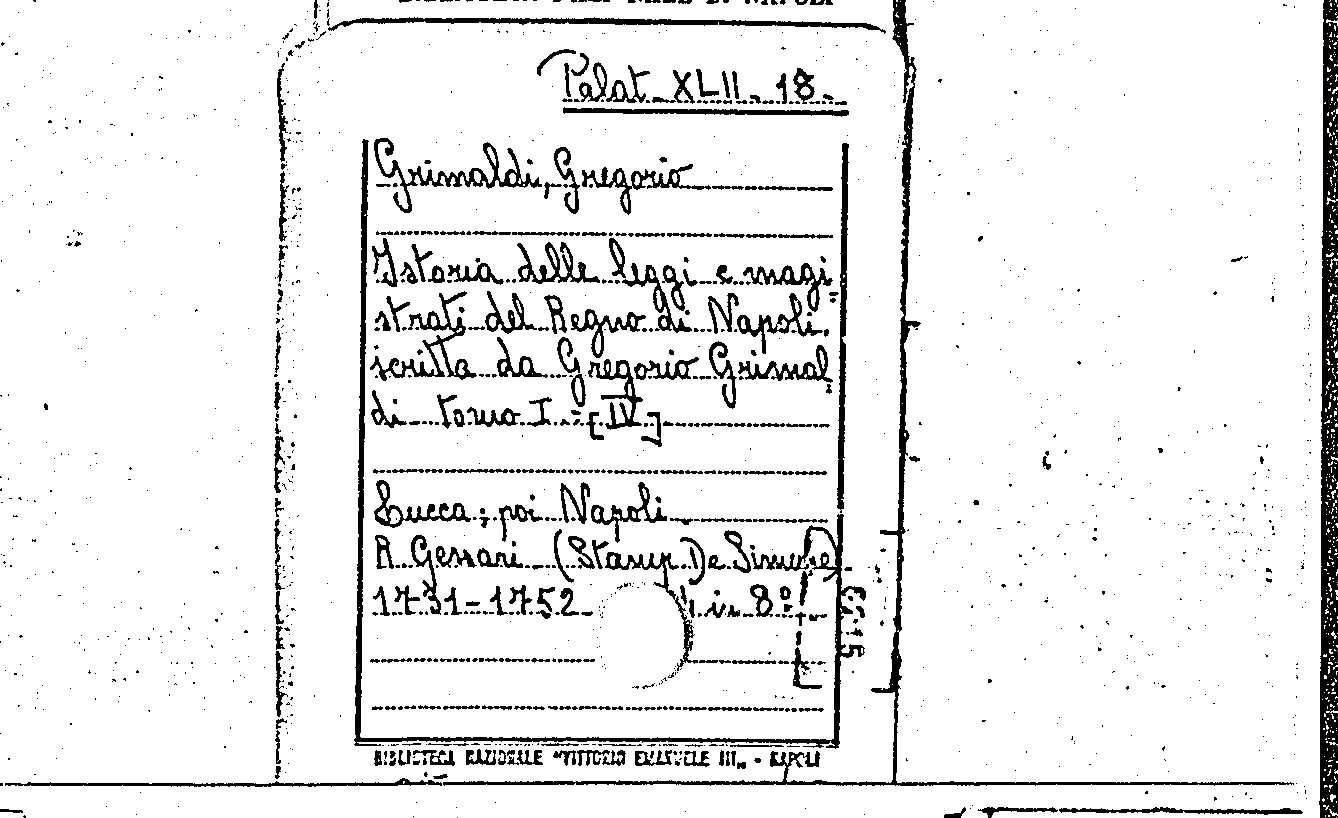 Palat. XLII. 18.
Grimaldi, Gregorio
Istoria delle leggi e magi=
strati del Regno di Napoli.
scritta da Gregorio Grimal=
di tomo I.=[IV]
Lucca; poi Napoli.
R. Gessari (Stamp. De Simone)
1731-1752 in 8º.
BIBLIOTECA NAZIONALE "VITTORIO EMANUELE III„ - NAPOLI